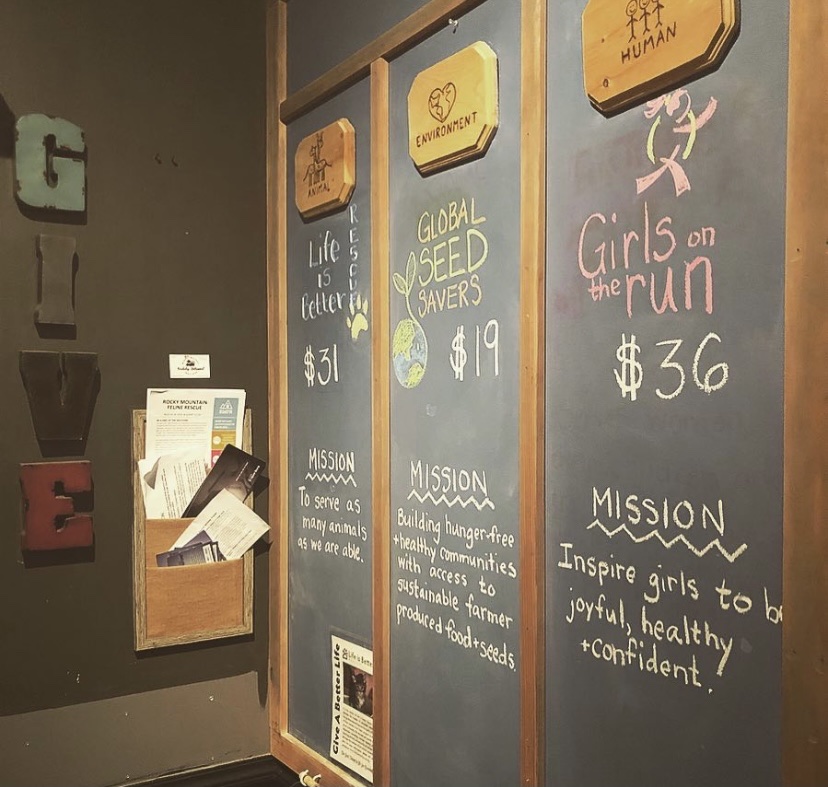 GIVE
ROCKY MOUNTAIN
FELINE RESCUE
ANIMAL
Life
is
Better
RESCUE
$31
MISSION
To serve as
many animals
as we are able.
Give A Better Life
Life is Bette
ENVIRONMENT
GLOBAL
SEED
SAVERS
$19
MISSION
Building hunger-free
+healthy communities
with access to
sustainable farmer
produced food+seeds.
HUMAN
Girls on
the run
$36
MISSION
Inspire girls to be
joyful, healthy
+confident.